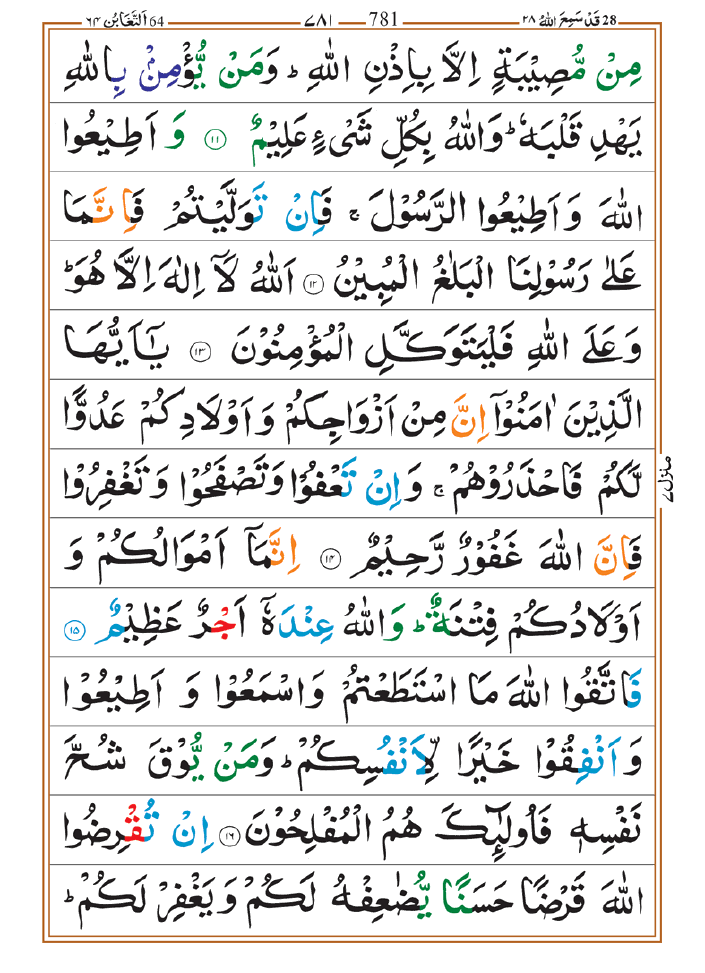 28 قَدْ سَمِعَ اللّٰهُ ٢٨ 781 ٧٨١ اَلتَّغَابُن 64 ٦٤
مِنْ مُّصِيْبَةٍ اِلَّا بِاِذْنِ اللّٰهِ ؕ وَمَنْ يُّؤْمِنْۢ بِاللّٰهِ
يَهْدِ قَلْبَهٗ ؕ وَاللّٰهُ بِكُلِّ شَىْءٍ عَلِيْمٌ ﴿۱۱﴾ وَ اَطِيْعُوا
اللّٰهَ وَ اَطِيْعُوا الرَّسُوْلَ ۚ فَاِنْ تَوَلَّيْتُمْ فَاِنَّمَا
عَلٰى رَسُوْلِنَا الْبَلٰغُ الْمُبِيْنُ ﴿۱۲﴾ اَللّٰهُ لَاۤ اِلٰهَ اِلَّا هُوَ ؕ
وَ عَلَى اللّٰهِ فَلْيَتَوَكَّلِ الْمُؤْمِنُوْنَ ﴿۱۳﴾ يٰۤاَيُّهَا
الَّذِيْنَ اٰمَنُوْۤا اِنَّ مِنْ اَزْوَاجِكُمْ وَ اَوْلَادِكُمْ عَدُوًّا
لَّكُمْ فَاحْذَرُوْهُمْ ۚ وَ اِنْ تَعْفُوْا وَ تَصْفَحُوْا وَ تَغْفِرُوْا
منزل ٧
فَاِنَّ اللّٰهَ غَفُوْرٌ رَّحِيْمٌ ﴿۱۴﴾ اِنَّمَاۤ اَمْوَالُكُمْ وَ
اَوْلَادُكُمْ فِتْنَةٌ ؕ وَاللّٰهُ عِنْدَهٗۤ اَجْرٌ عَظِيْمٌ ﴿۱۵﴾
فَاتَّقُوا اللّٰهَ مَا اسْتَطَعْتُمْ وَاسْمَعُوْا وَ اَطِيْعُوْا
وَ اَنْفِقُوْا خَيْرًا لِّاَنْفُسِكُمْ ؕ وَمَنْ يُّوْقَ شُحَّ
نَفْسِهٖ فَاُولٰٓئِكَ هُمُ الْمُفْلِحُوْنَ ﴿۱۶﴾ اِنْ تُقْرِضُوا
اللّٰهَ قَرْضًا حَسَنًا يُّضٰعِفْهُ لَكُمْ وَ يَغْفِرْ لَكُمْ ؕ